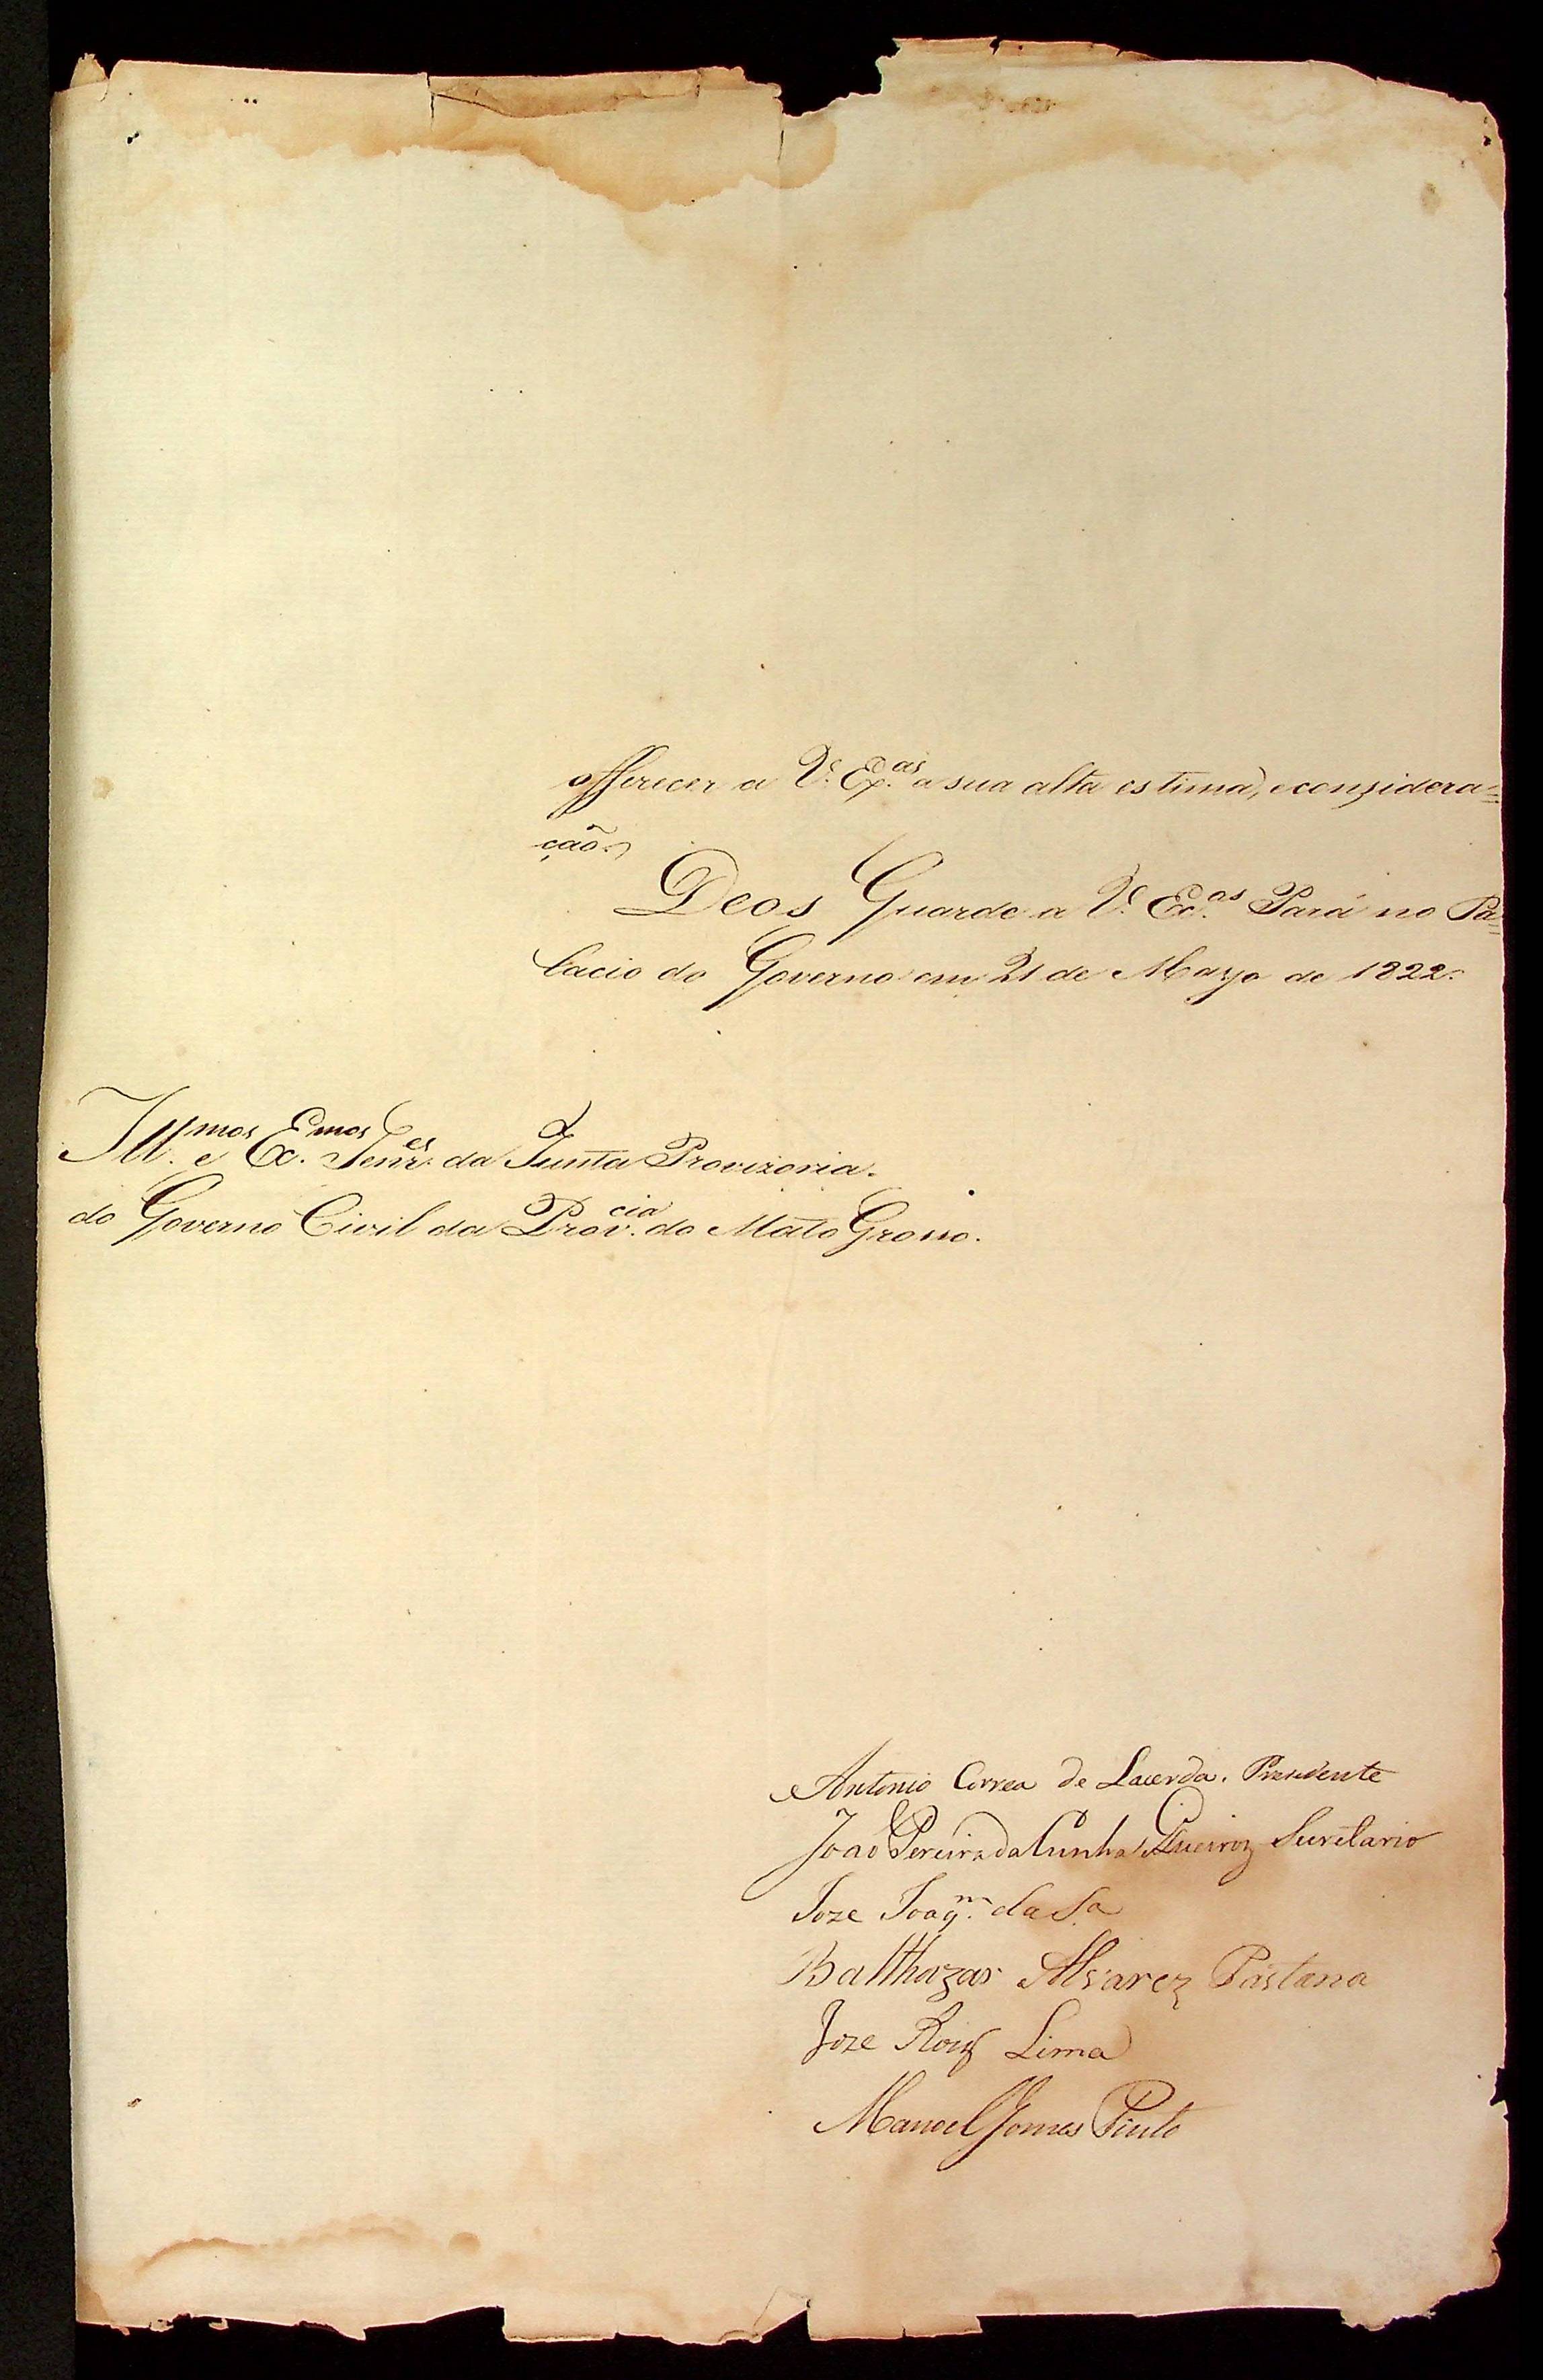 offerecer a V. Ex.as a sua alta estima, e considera=
ção.
Deos Guarde a V. Ex.as Pará no Pa=
lacio do Governo em 21 de Março de 1822.
Ill.mos e Ex.mos Senr.es da Junta Provizoria
do Governo Civil da Prov.cia do Mato Grosso.
Antonio Correa de Lacerda. Presidente
João Pereira da Cunha Queiroz Secretario
Joze Joaq.m da S.a
Balthazar Alvarez Pastana
Joze Roiz Lima
Manoel Gomes Pinto